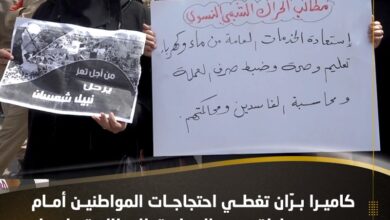 مطالب الحراك التعزي النسوي
إستعادة الخدمات العامة من ماء وكهرباء
تعليم وصحة وضبط صرف العملة
ومحاسبة الفاسدين ومحاكمتهم.
من أجل تعز
يرحل
نبيل شمسان
كاميرا برّان تغطي احتجاجات المواطنين أمام